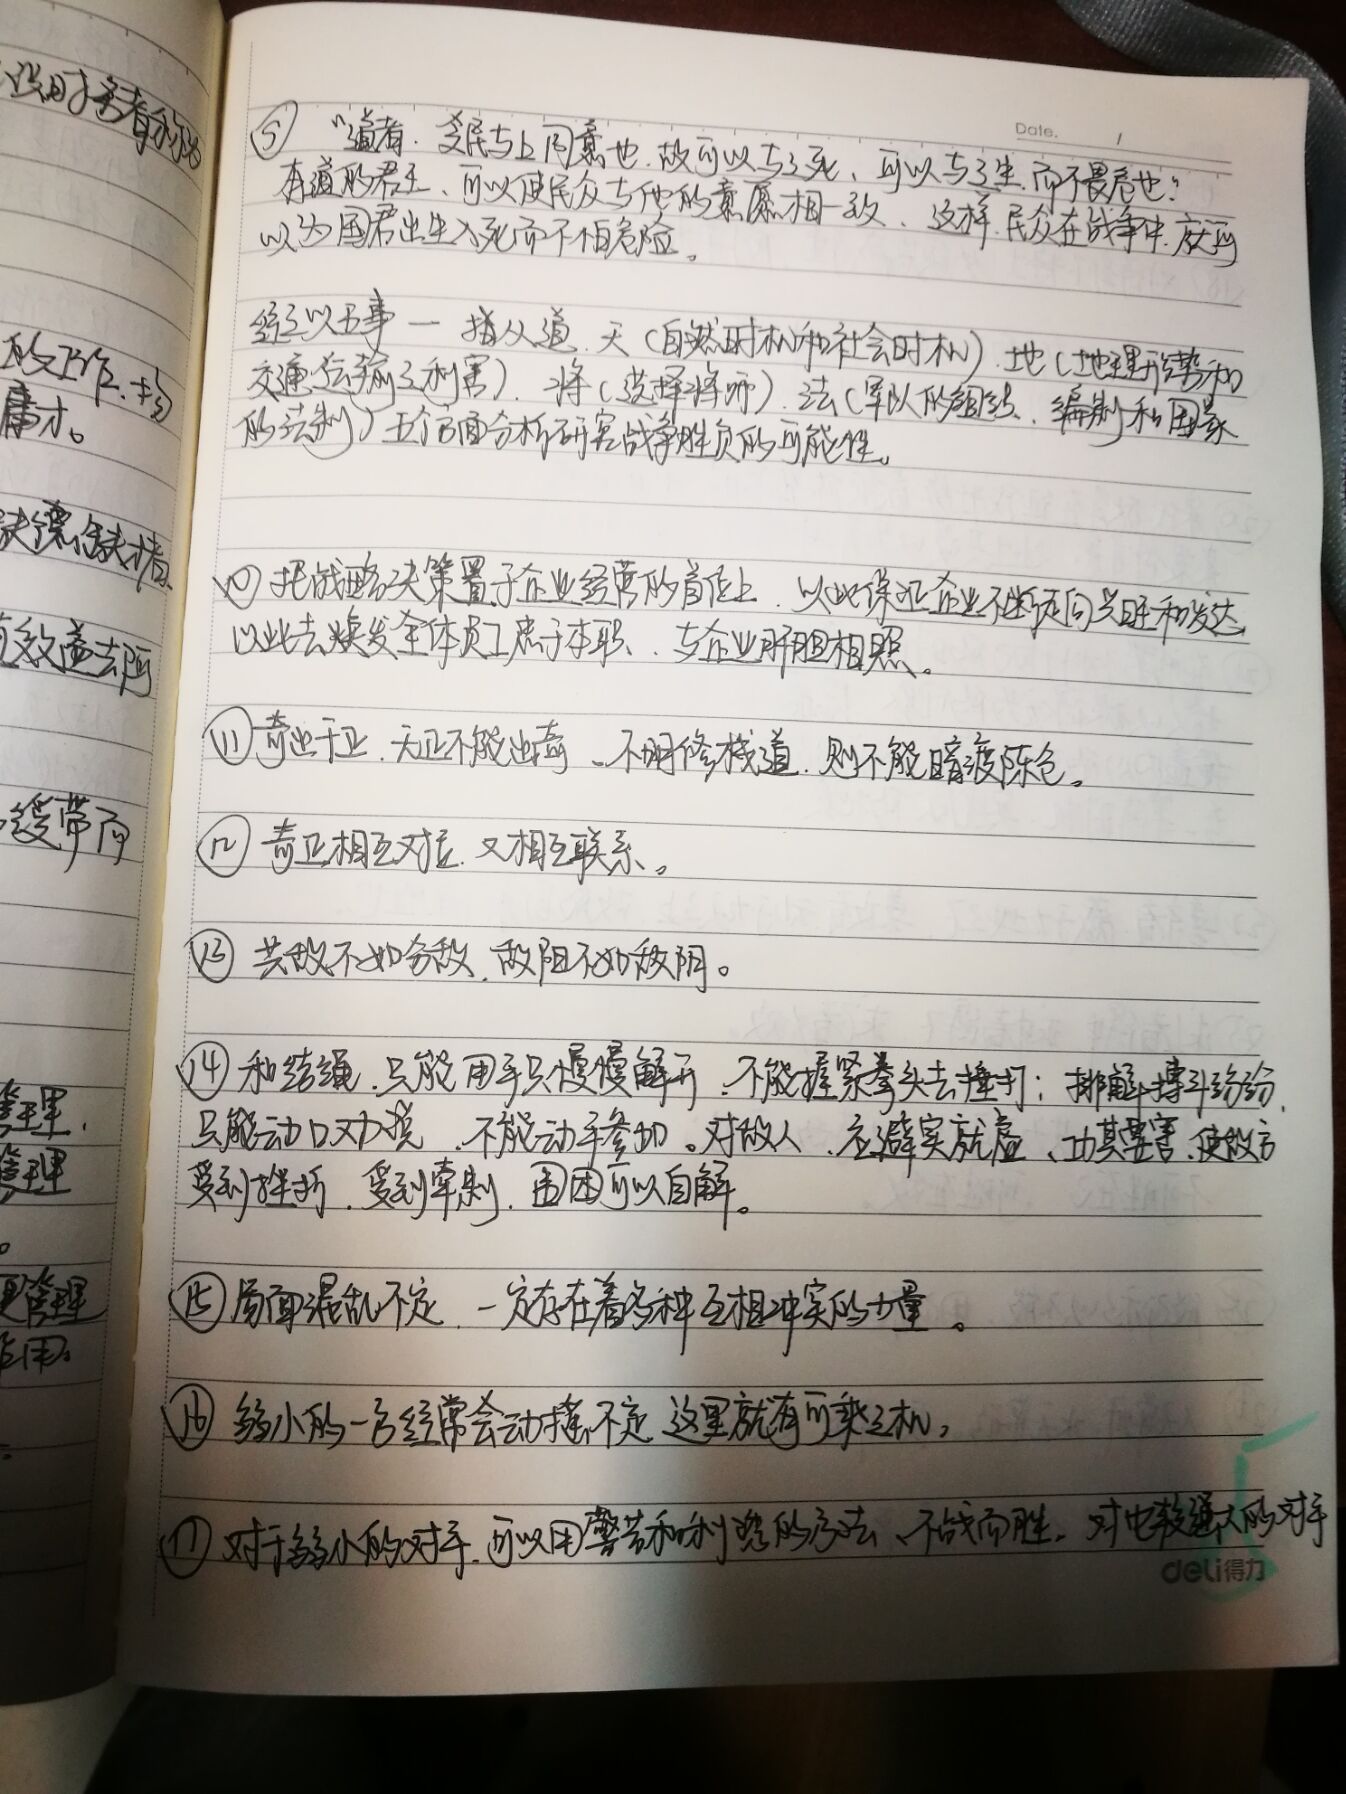 设时害者
的工作
庸才。
效益去
缓带而
管理.
管理
管理
作用。
Date.
⑤ "道者.令民与上同意也.故可以与之死、可以与之生.而不畏危也:
有道的君主、可以使民众与他的意愿相一致、这样.民众在战争中.就可
以为国君出生入死而不怕危险。
经之以五事一 指从道.天(自然时机和社会时机).地(地理形势和
交通运输之利害).将(选择将师).法(军队的组织、编制和国家
的法制)五个方面分析研究战争胜负的可能性。
⑩ 把战略决策置于企业经营的首位上.以此保证企业不断走向兴旺和发达
以此去焕发全体员工忠于本职、与企业肝胆相照。
⑪ 奇出于正.无正不能出奇、不明修栈道.则不能暗渡陈仓。
⑫ 奇正相互对立.又相互联系。
⑬ 共敌不如分敌.敌阳不如敌阴。
⑭ 和结绳.只能用手只慢慢解开、不能握紧拳头去捶打;排解搏斗纷纷.
只能动口劝说、不能动手参加。对敌人、应避实就虚、功其要害.使敌方
受到挫折.受到牵制.围困可以自解。
⑮ 局面混乱不定.一定存在着多种互相冲突的力量。
⑯ 弱小的一方经常会动摇不定.这里就有可乘之机,
⑰ 对于弱小的对手.可以用警告和利诱的方法、不战而胜.对也较强大的对手
deli得力